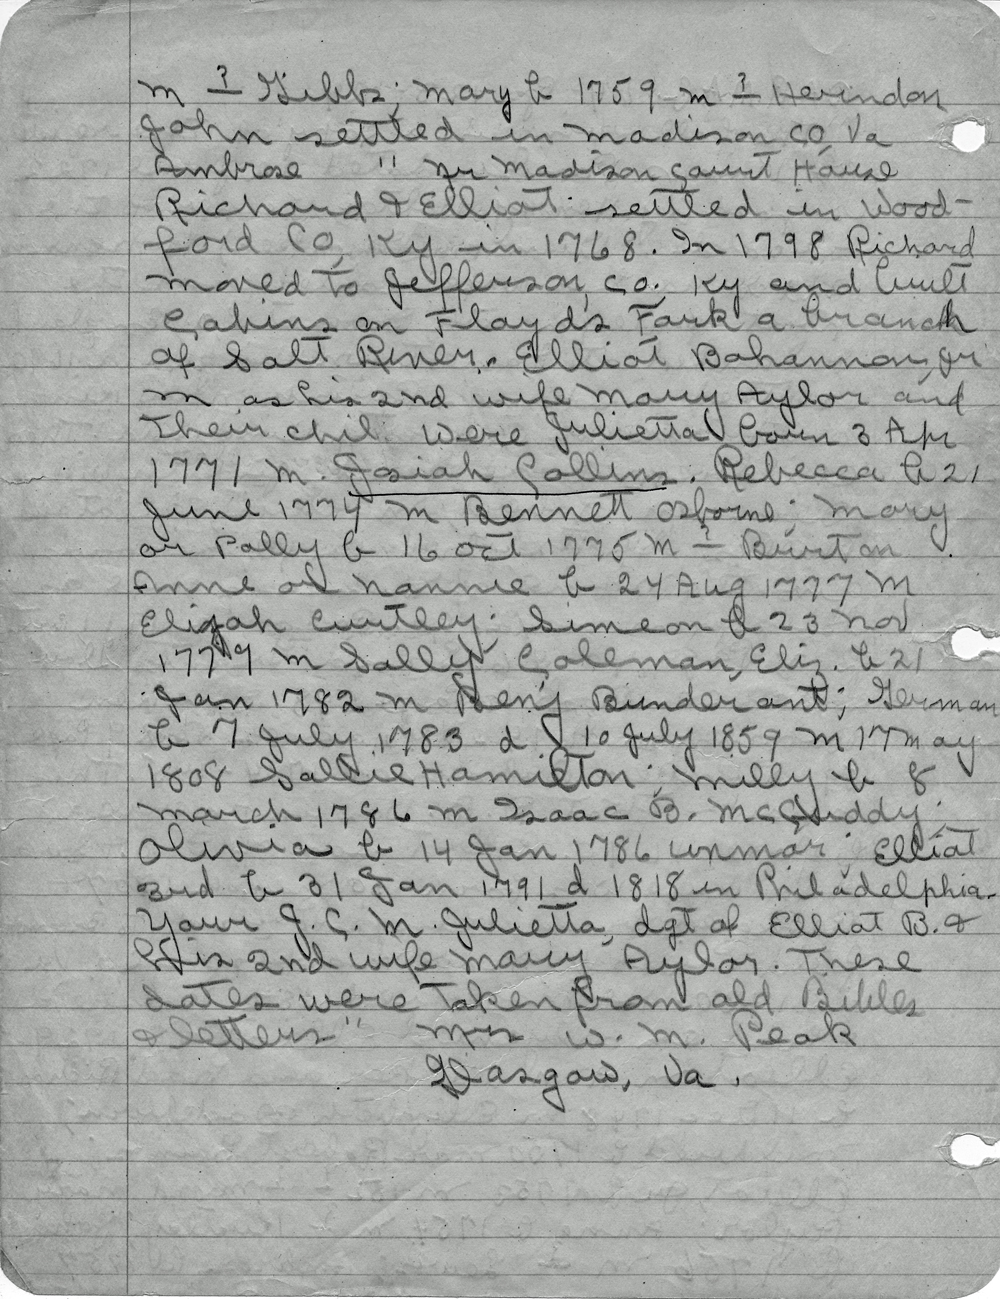 m ? Gibbs; Mary b 1759 m ? Herndon
John settled in Madison Co, Va
Ambrose " nr Madison Court House
Richard & Elliot settled in Wood-
ford Co, Ky in 1768. In 1798 Richard
moved to Jefferson, Co. Ky and built
Cabins on Floyds Fork a branch
of Salt River. Elliot Bohannon, jr
m as his 2nd wife Mary Aylor and
their chil. were Julietta born 3 Apr
1771 m. Josiah Collins. Rebecca b 21
June 1774 m Bennett Osborne; Mary
or Polly b 16 Oct 1775 m ? Burton
Anne or Nannie b 24 Aug 1777 m
Elijah Curtley. Simeon b 23 Nov
1779 m Sally Coleman, Eliz. b 21
Jan 1782 m Benj Bunderant; German
b 7 July 1783 d 10 July 1859 m 17 May
1808 Sallie Hamilton; Milly b 8
March 1786 m Isaac B. McCuddy;
Olivia b 14 Jan 1786 unmar Elliot
3rd b 31 Jan 1791 d 1818 in Philadelphia.
Your J. C. m. Julietta, dgt of Elliot B. &
His 2nd wife Mary Aylor. These
dates were taken from old Bibles
& letters" Mrs W. M. Peak
Glasgow, Va.